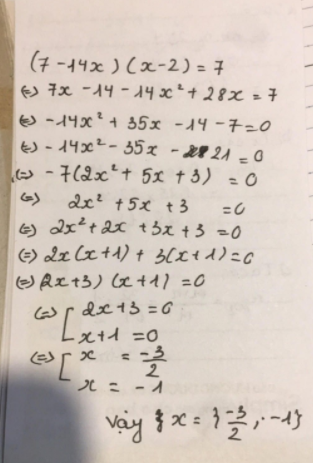 (7-14x)(x-2)=7
(=) 7x -14 -14x² + 28x = 7
(=) -14x² + 35x -14 -7=0
(=) -14x² - 35x - 21 = 0
(=) -7(2x² + 5x + 3) = 0
(=) 2x² + 5x + 3 = 0
(=) 2x² + 2x + 3x + 3 = 0
(=) 2x(x+1) + 3(x+1) = 0
(=) (2x+3)(x+1) = 0
(=) [ 2x+3 = 0
x+1 = 0
(=) [ x = -3/2
x = -1
Vậy { x = {-3/2; -1}